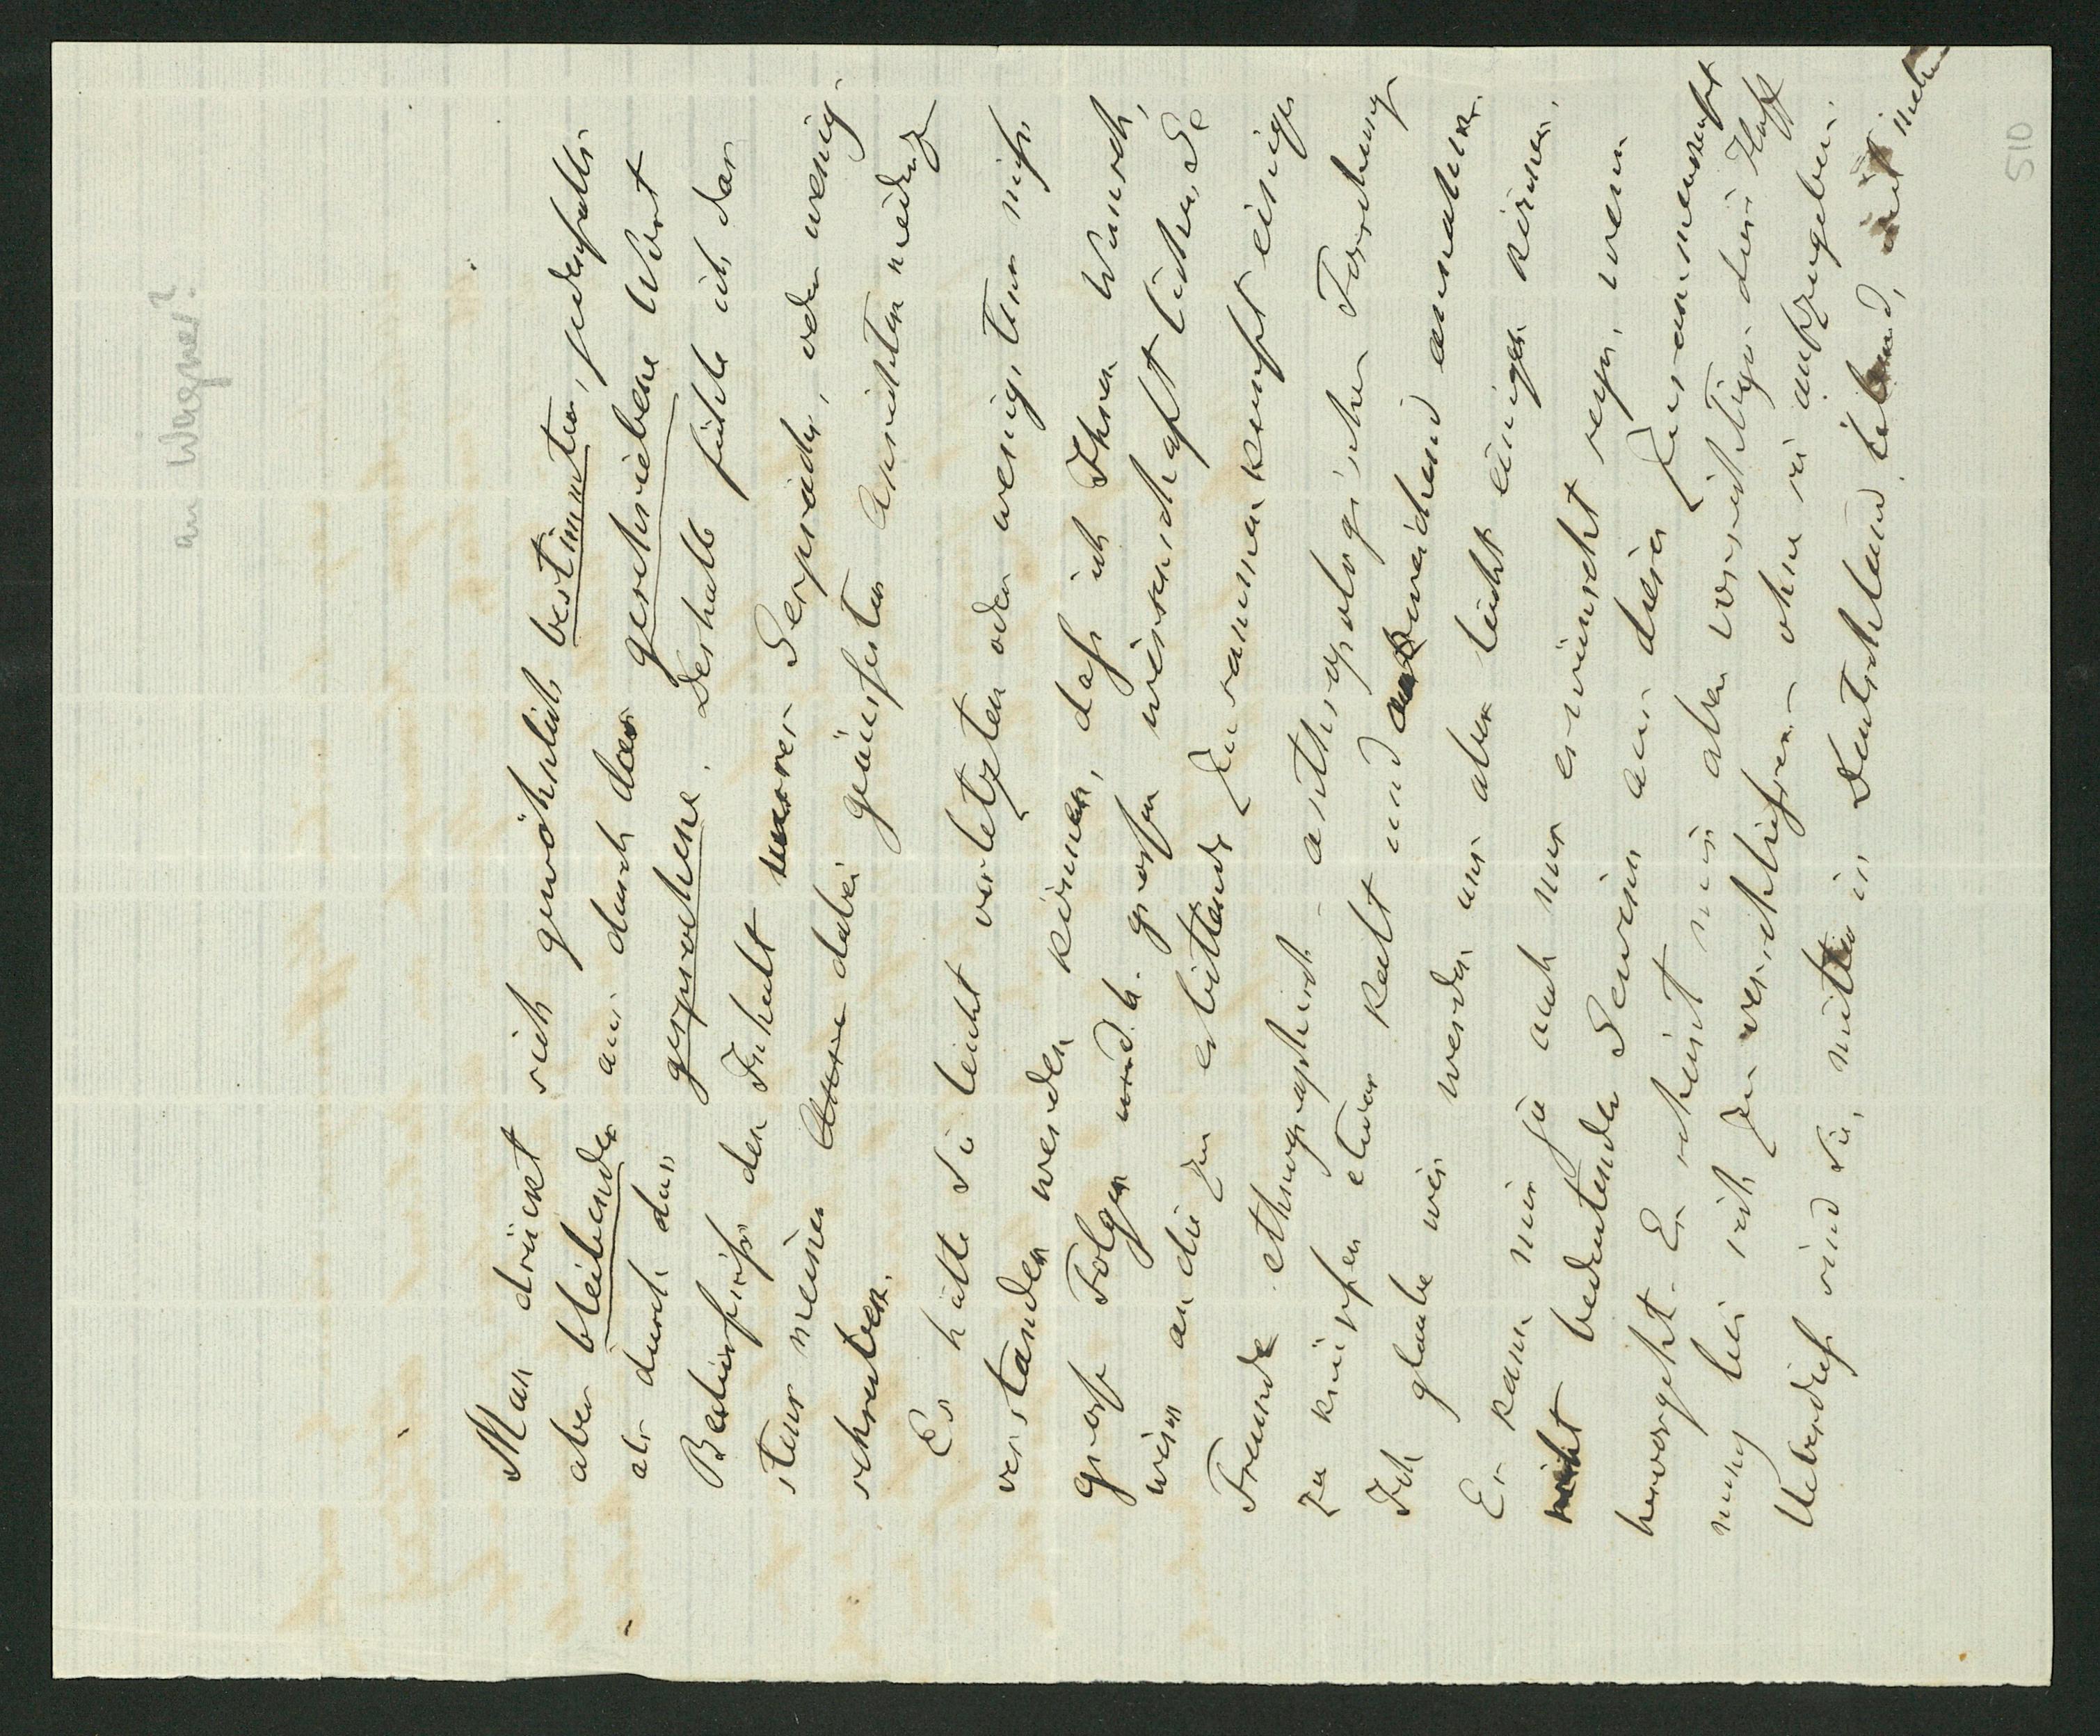 an Wagner?
Man drückt sich gewöhnlich bestimmter, jedenfalls
aber bleibender aus durch das geschriebene Wort
als durch das gesprochene. Deshalb fühle ich das
Bedürfniss den Inhalt unseres Gesprächs, oder wenig-
stens meiner dabei geäusserten Ansichten niederzu
schreiben.
Es hätte Sie leicht verletzen oder wenigstens nicht
verstanden werden können, dass ich Ihren Wunsch,
grosse Folgen und b. grossen wissenschaftliche Ge
winn an die zu erbittende Zusammenkunft einiger
Freunde ethnographisch-anthropologischer Forschung
zu knüpfen etwas kalt und abweichend annahm.
Ich glaube wir werden uns aber leicht einigen können.
Es kann mir ja auch nur erwünscht seyn, wenn
bedeutender Gewinn aus dieser Zusammenkunft
hervorgeht. Es scheint mir aber vorsichtiger diese Hoff
nung bei sich zu verschliessen ohne sie aufzugeben.
Ueberdiess sind Sie, mitten in Deutschland lebend, mit mehr
510